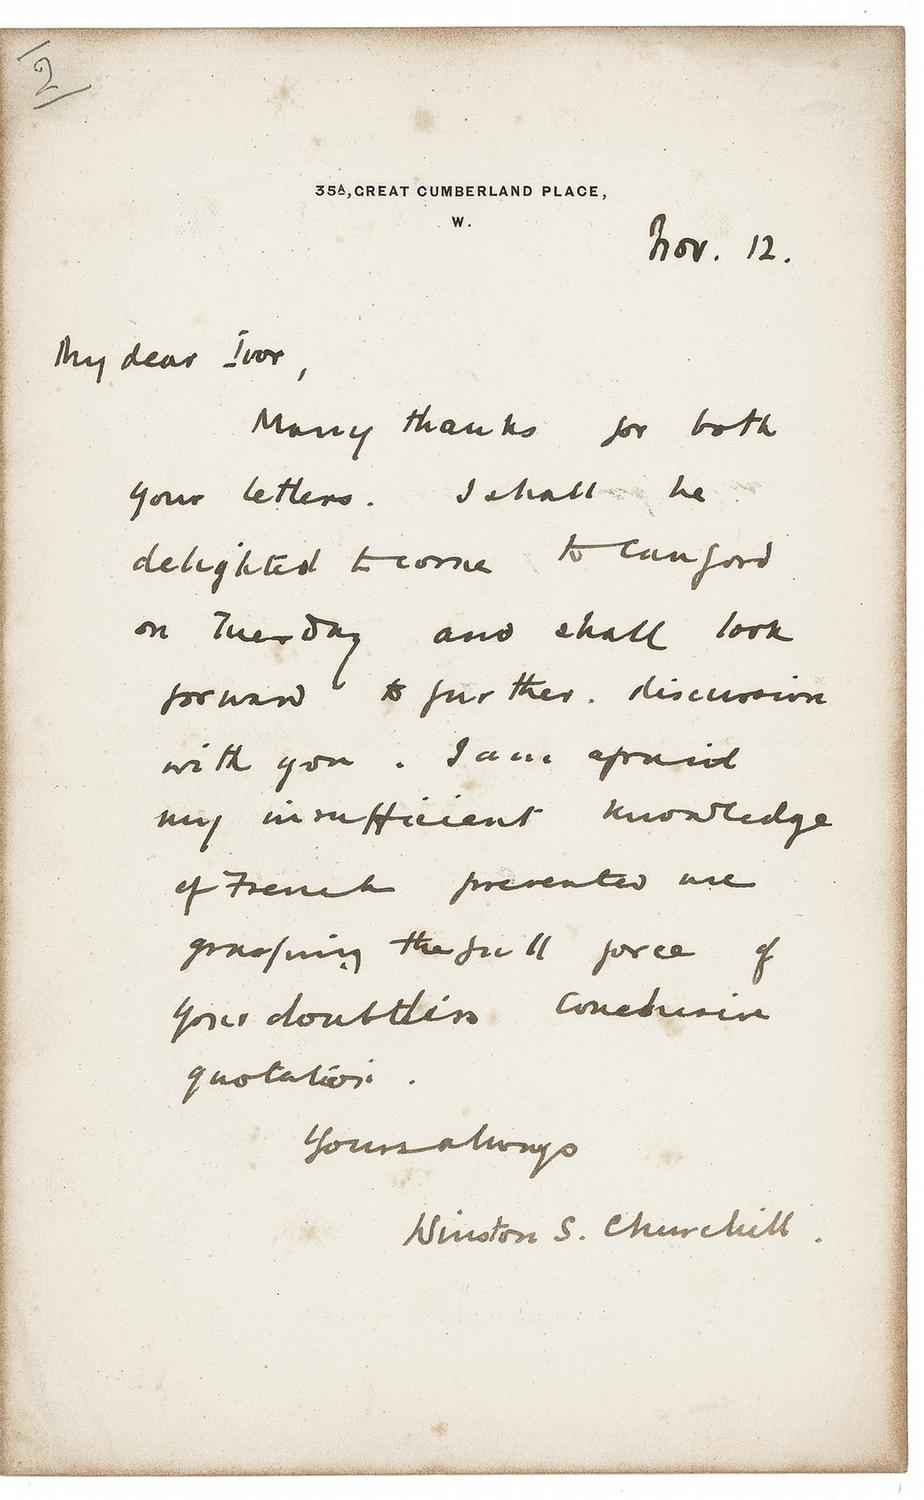 2
35A, GREAT CUMBERLAND PLACE,
W.
Nov. 12.
My dear Ivor,
Many thanks for both
your letters. I shall be
delighted to come to Canford
on Tuesday and shall look
forward to further. discussion
with you. I am afraid
my insufficient knowledge
of French prevented me
grasping the full force of
your doubtless conclusive
quotation.
Yours always
Winston S. Churchill.